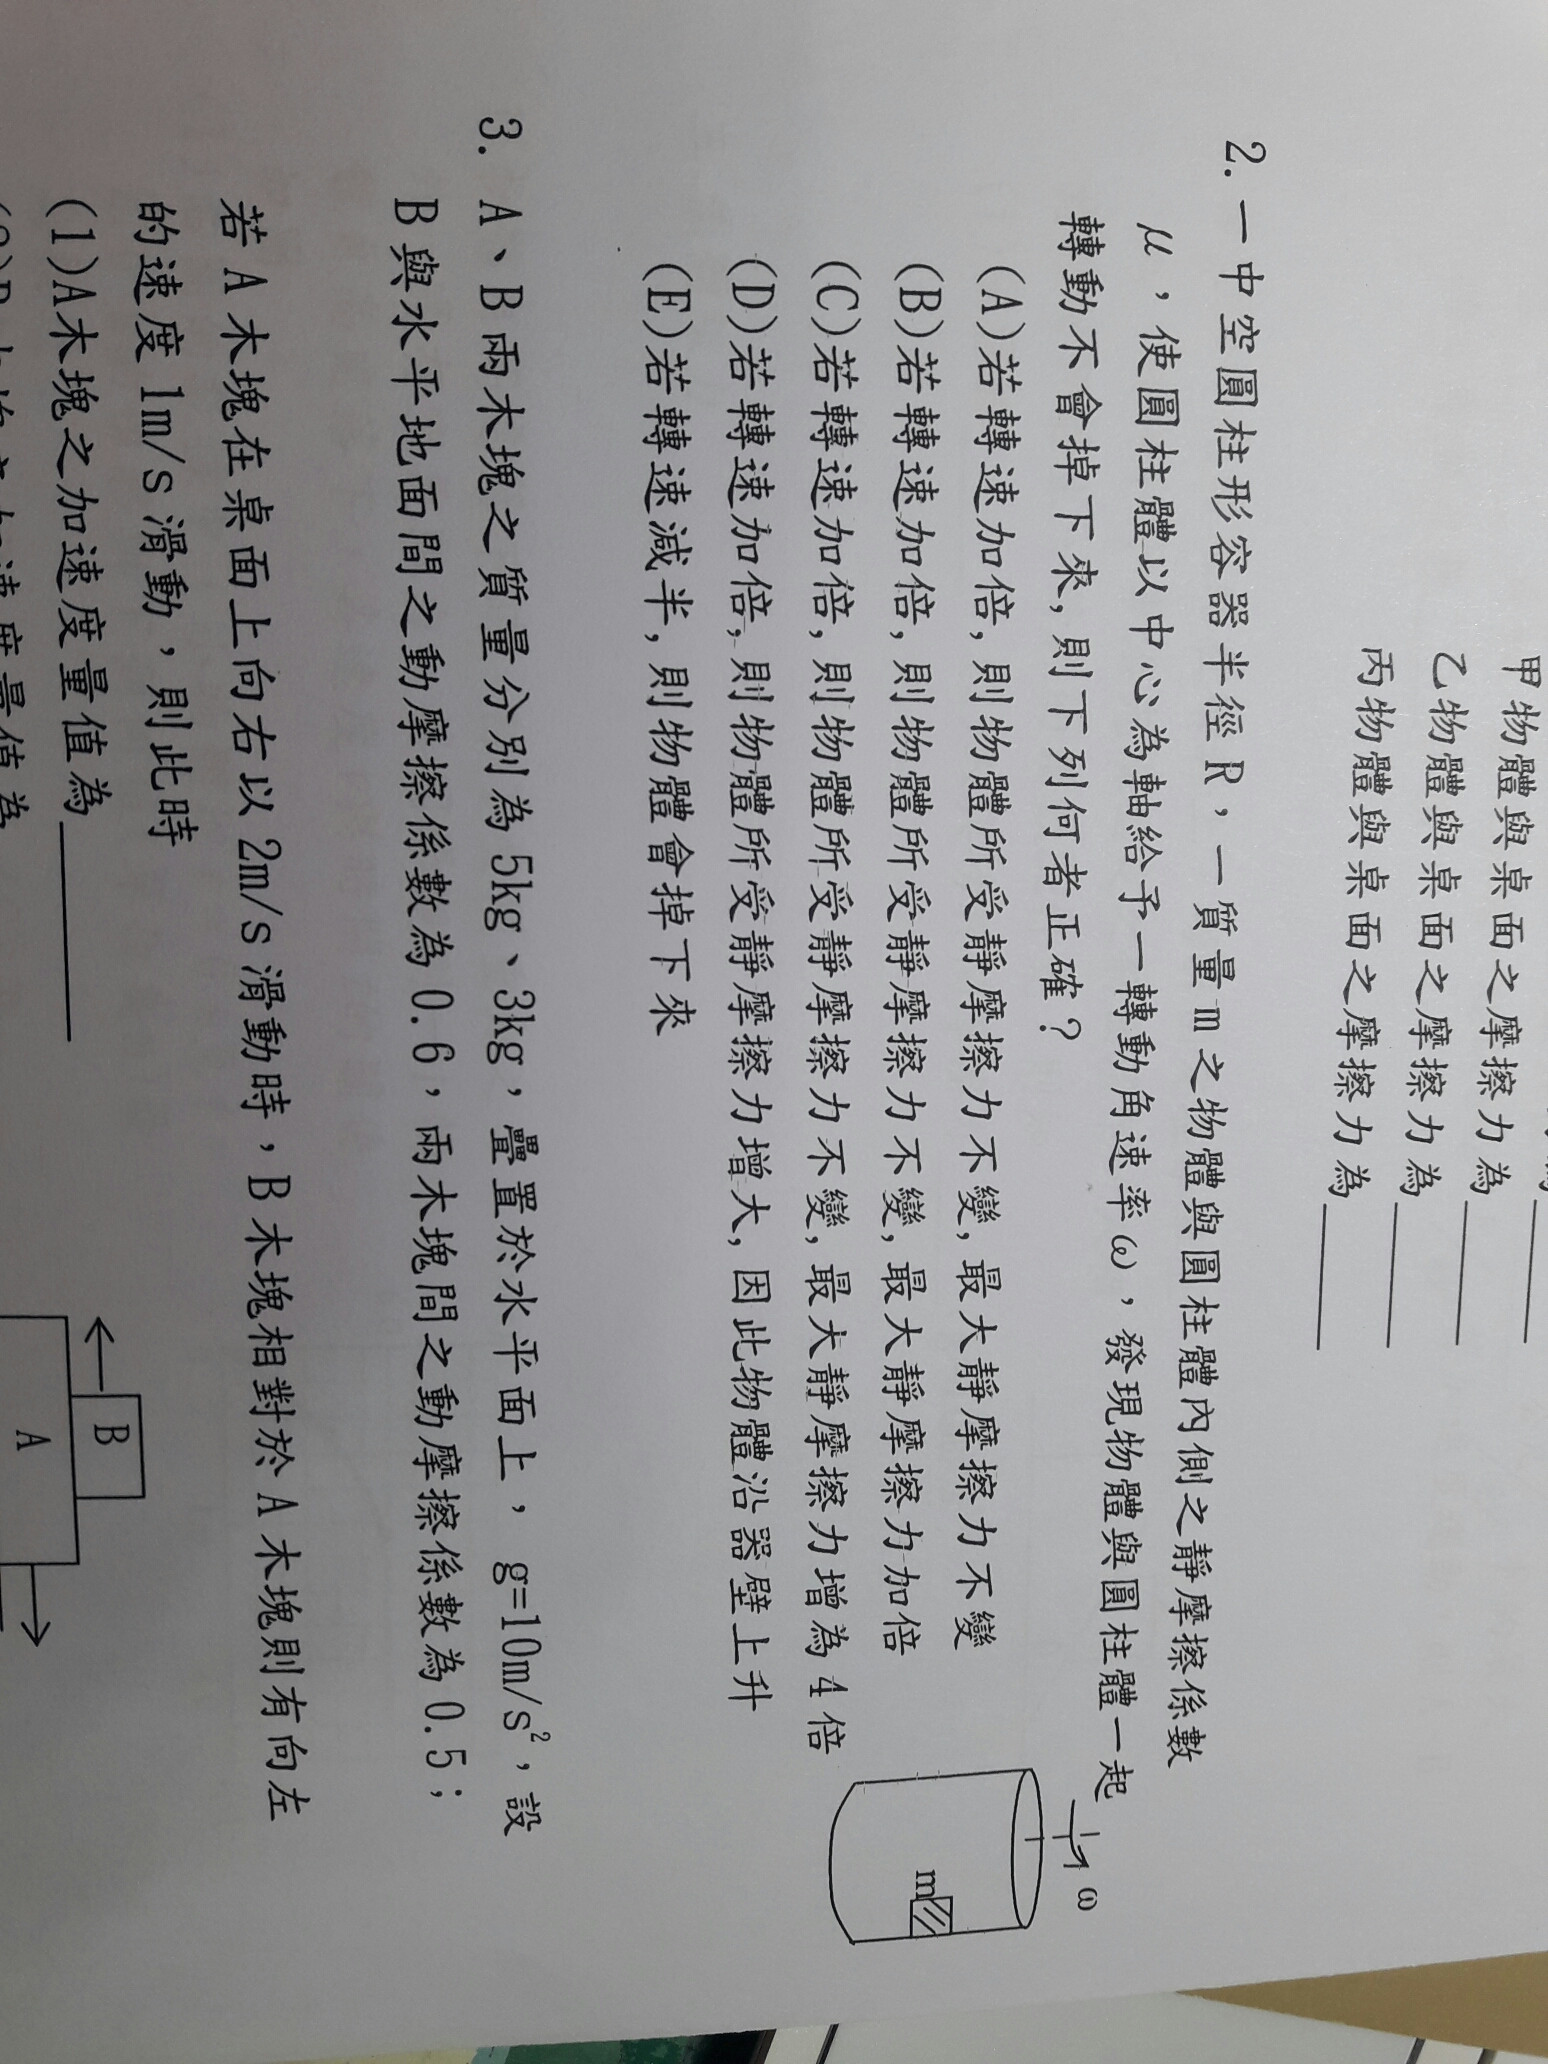 甲物體與桌面之摩擦力為
乙物體與桌面之摩擦力為
丙物體與桌面之摩擦力為
2. 一中空圓柱形容器半徑R，一質量m之物體與圓柱體內側之靜摩擦係數
μ，使圓柱體以中心為軸給予一轉動角速率ω，發現物體與圓柱體一起
轉動不會掉下來，則下列何者正確？
(A)若轉速加倍，則物體所受靜摩擦力不變，最大靜摩擦力不變
(B)若轉速加倍，則物體所受靜摩擦力不變，最大靜摩擦力加倍
(C)若轉速加倍，則物體所受靜摩擦力不變，最大靜摩擦力增為4倍
(D)若轉速加倍，則物體所受靜摩擦力增大，因此物體沿器壁上升
(E)若轉速減半，則物體會掉下來
ω
m
3. A、B兩木塊之質量分別為5kg、3kg，疊置於水平面上，g=10m/s²，設
B與水平地面間之動摩擦係數為0.6，兩木塊間之動摩擦係數為0.5；
若A木塊在桌面上向右以2m/s滑動時，B木塊相對於A木塊則有向左
的速度1m/s滑動，則此時
(1)A木塊之加速度量值為
B
A